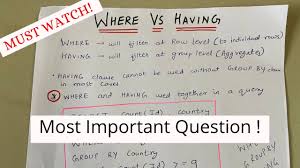 MUST WATCH!
WHERE Vs HAVING
WHERE → will filter at Row level (to individual rows)
HAVING → will filter at group level (Aggregate)
• HAVING clause cannot be used without GROUP BY clause
in most cases
③ WHERE and HAVING used together in a query
Count(Id) Country
Most Important Question !
GROUP BY Country
(Id) >= 9